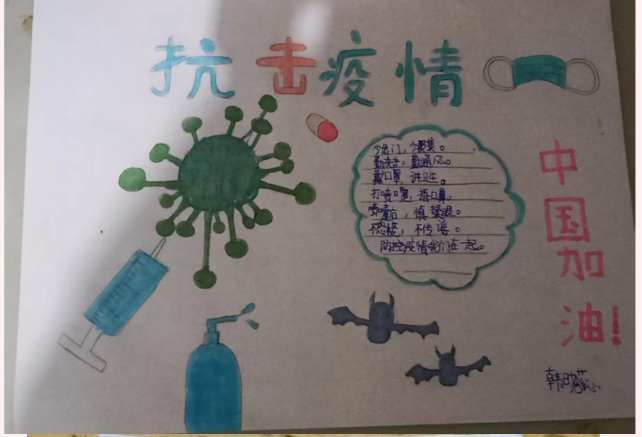 抗击疫情
少出门，少聚集。
勤洗手，勤通风。
戴口罩，讲卫生。
打喷嚏，捂口鼻，
喷嚏后，慎揉眼。
不恐慌，不传谣。
防控疫情我们在一起。
中国加油！